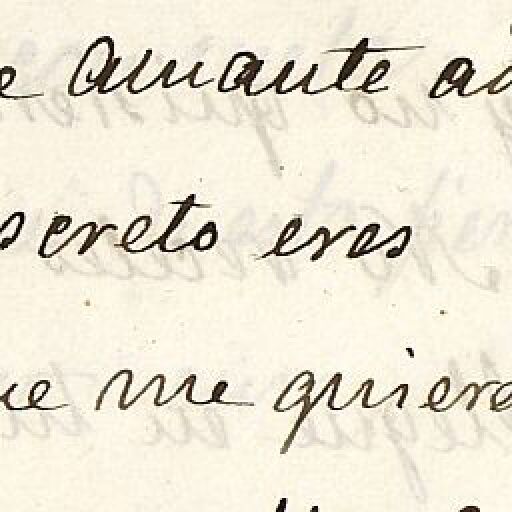 e amante ad
screto eres
ue me quiere